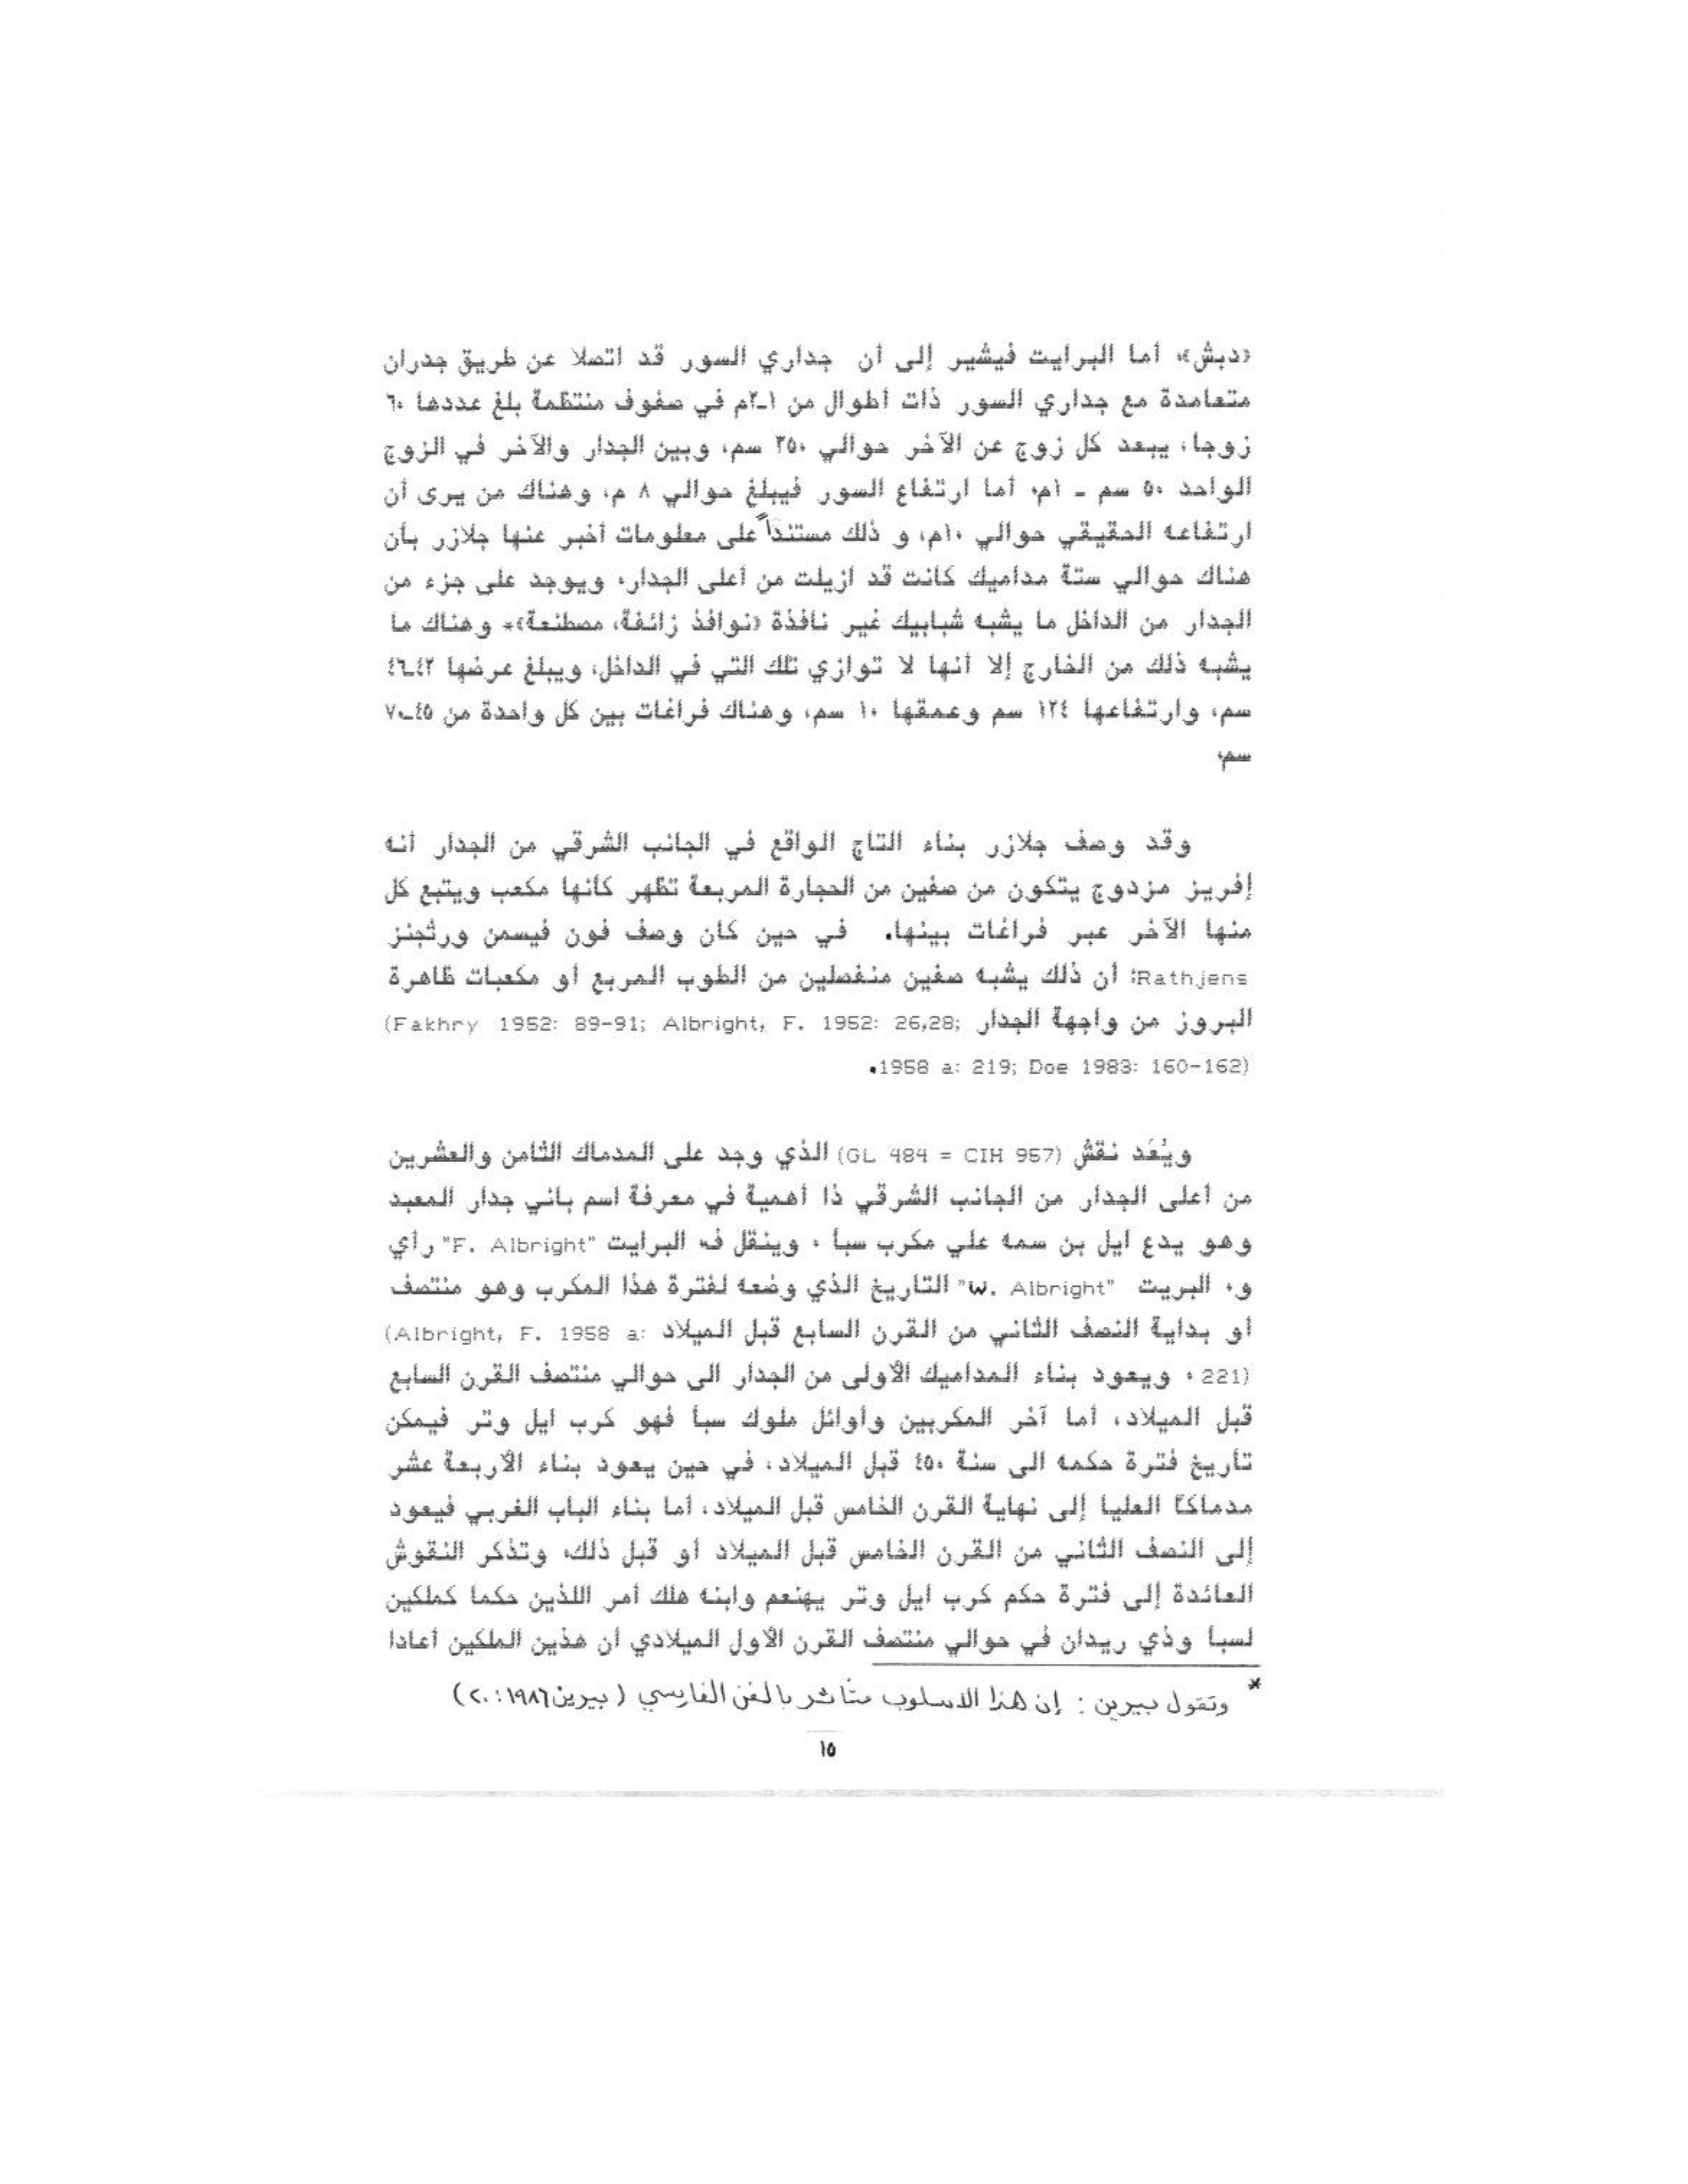 (دبش)، أما البرايت فيشير إلى أن جداري السور قد اتصلا عن طريق جدران
متعامدة مع جداري السور ذات أطوال من ١ـ٢م في صفوف منتظمة بلغ عددها ٦٠
زوجا، يبعد كل زوج عن الآخر حوالي ٢٥٠ سم، وبين الجدار والآخر في الزوج
الواحد ٥٠ سم ـ ١م، أما ارتفاع السور فيبلغ حوالي ٨ م، وهناك من يرى أن
ارتفاعه الحقيقي حوالي ١٠م، و ذلك مستنداً على معلومات أخبر عنها جلازر بأن
هناك حوالي ستة مداميك كانت قد ازيلت من أعلى الجدار، ويوجد على جزء من
الجدار من الداخل ما يشبه شبابيك غير نافذة (نوافذ زائفة، مصطنعة)* وهناك ما
يشبه ذلك من الخارج إلا أنها لا توازي تلك التي في الداخل، ويبلغ عرضها ٤٢ـ٤٦
سم، وارتفاعها ١٢٤ سم وعمقها ١٠ سم، وهناك فراغات بين كل واحدة من ٤٥ـ٧٠
سم،
وقد وصف جلازر بناء التاج الواقع في الجانب الشرقي من الجدار أنه
إفريز مزدوج يتكون من صفين من الحجارة المربعة تظهر كأنها مكعب ويتبع كل
منها الآخر عبر فراغات بينها. في حين كان وصف فون فيسمن ورثجنز
Rathjens: أن ذلك يشبه صفين منفصلين من الطوب المربع أو مكعبات ظاهرة
البروز من واجهة الجدار (Fakhry 1952: 89-91; Albright, F. 1952: 26,28;
1958 a: 219; Doe 1983: 160-162).
ويُعَد نقش (GL 484 = CIH 957) الذي وجد على المدماك الثامن والعشرين
من أعلى الجدار من الجانب الشرقي ذا أهمية في معرفة اسم باني جدار المعبد
وهو يدع ايل بن سمه علي مكرب سبأ . وينقل ف. البرايت "F. Albright" رأي
و. البريت "W. Albright" التاريخ الذي وضعه لفترة هذا المكرب وهو منتصف
أو بداية النصف الثاني من القرن السابع قبل الميلاد (Albright, F. 1958 a:
221) . ويعود بناء المداميك الأولى من الجدار الى حوالي منتصف القرن السابع
قبل الميلاد، أما آخر المكربين وأوائل ملوك سبأ فهو كرب ايل وتر فيمكن
تأريخ فترة حكمه الى سنة ٤٥٠ قبل الميلاد، في حين يعود بناء الأربعة عشر
مدماكاً العليا إلى نهاية القرن الخامس قبل الميلاد، أما بناء الباب الغربي فيعود
إلى النصف الثاني من القرن الخامس قبل الميلاد أو قبل ذلك، وتذكر النقوش
العائدة إلى فترة حكم كرب ايل وتر يهنعم وابنه هلك أمر اللذين حكما كملكين
لسبأ وذي ريدان في حوالي منتصف القرن الأول الميلادي أن هذين الملكين أعادا
* وتقول بيرين : إن هذا الاسلوب متأثر بالفن الفارسي (بيرين ١٩٨٦: ٢٠)
١٥